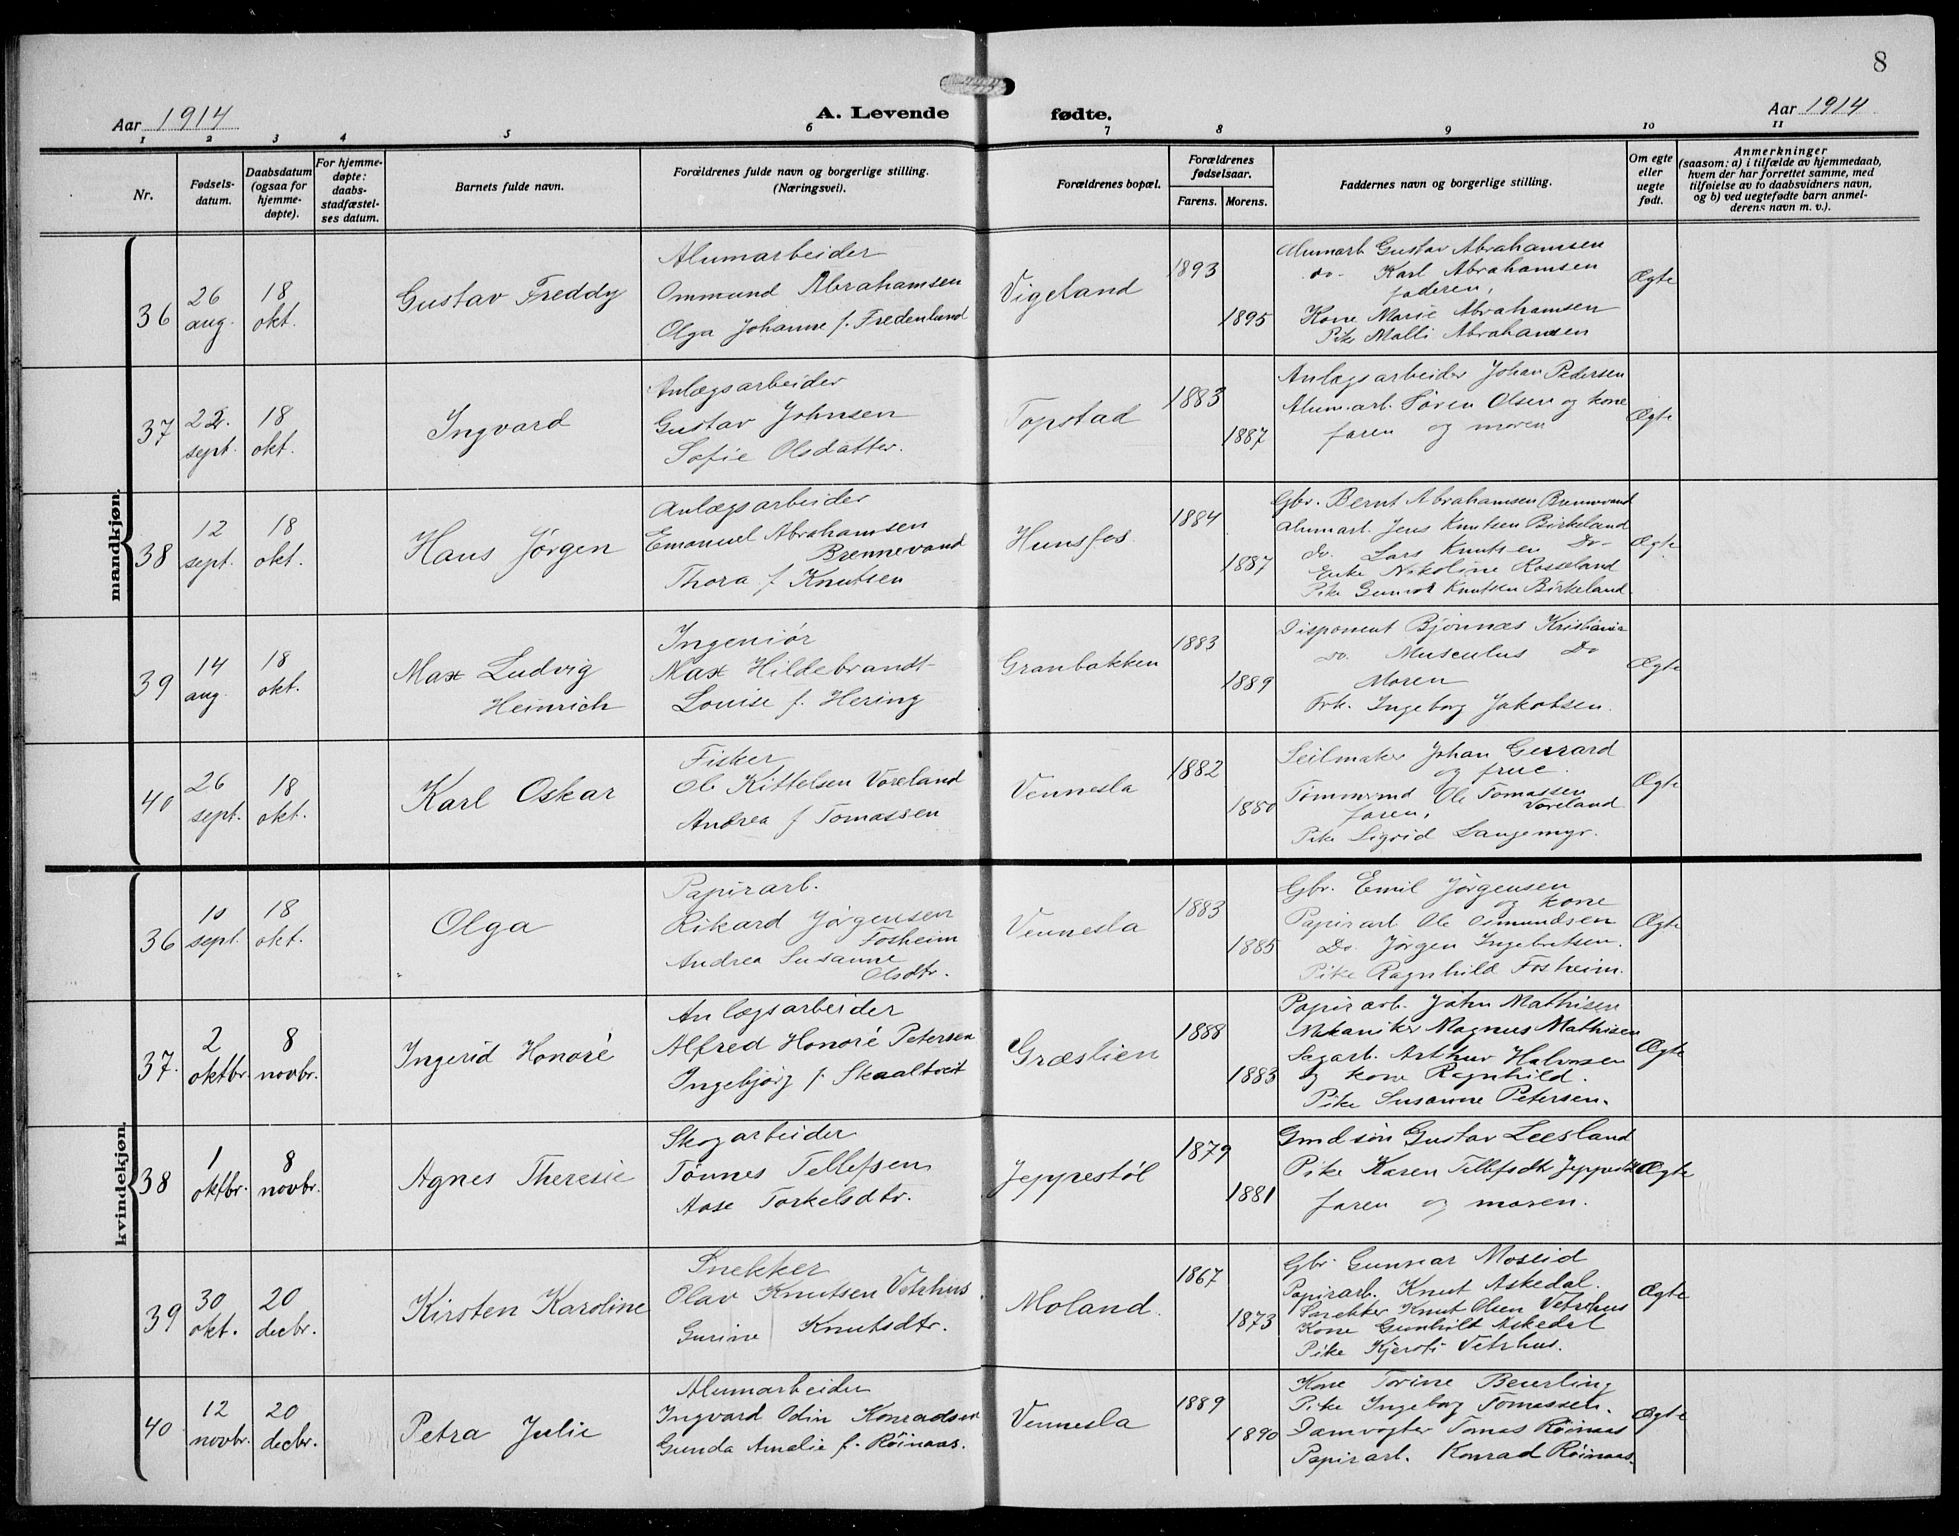 8
Aar 1914
A. Levende fødte.
Aar 1914
1 2 3 4 5 6 7 8 9 10 11
Nr.
Fødsels-
datum.
Daabsdatum
(ogsaa for
hjemme-
døpte).
For hjemme-
døpte:
daabs-
stadfæstel-
ses datum.
Barnets fulde navn.
Forældrenes fulde navn og borgerlige stilling.
(Næringsvei).
Forældrenes bopæl.
Forældrenes
fødselsaar.
Farens. Morens.
Faddernes navn og borgerlige stilling.
Om egte
eller
uegte
født.
Anmerkninger
(saasom: a) i tilfælde av hjemmedaab,
hvem der har forrettet samme, med
tilføielse av to daabsvidners navn,
og b) ved uegtefødte barn anmel-
derens navn m. v.).
mandkjøn.
36
26
aug.
18
okt.
Gustav Freddy
Alumarbeider
Ommund Abrahamsen
Olga Johanne f. Fredenlund
Vigeland
1893
1895
Alumarb. Gustav Abrahamsen
do. Karl Abrahamsen
faderen,
Kone Marie Abrahamsen
Pike Malli Abrahamsen
Ægte
37
22.
sept.
18
okt.
Ingvard
Anlægsarbeider
Gustav Johnsen
Sofie Olsdatter.
Topstad
1883
1887
Anlægsarbeider Johan Pedersen
Alumarb. Søren Olsen og kone
faren og moren
Ægte
38
12
sept.
18
okt.
Hans Jørgen
Anlægsarbeider
Emanuel Abrahamsen
Brennevand
Thora f. Knutsen
Hunsfos
1884
1887
Gbr. Bernt Abrahamsen Brennevand
Alumarb. Jens Knutsen Birkeland
do. Lars Knutsen Do-
Enke Nikoline Roseland
Pike Gunvor Knutsen Birkeland
Ægte
39
14
aug.
18
okt.
Max Ludvig
Heinrich
Ingeniør
Max Hildebrandt
Louise f. Hering
Granbakken
1883
1889
Disponent Bjønnæs Kristiania
do. Musculus Do
Moren
Frk. Ingeborg Jakobsen.
Ægte
40
26
sept.
18
okt.
Karl Oskar
Fisker
Ole Kittelsen Voreland
Andrea f Tomassen
Vennesla
1882
1880
Seilmaker Johan Gerrard
og frue.
Tømmermd Ole Tomassen
Voreland
faren,
Pike Sigrid Langemyr.
Ægte
kvindekjøn.
36
10
sept.
18
okt.
Olga
Papirarb.
Rikard Jørgensen
Fosheim
Andrea Susanne
Olsdtr.
Vennesla
1883
1885
Gbr. Emil Jørgensen
og kone
Papirarb Ole Osmundsen
Do. Jørgen Ingebretsen.
Pike Ragnhild Fosheim.
Ægte
37.
2
oktbr.
8
novbr.
Ingerid Honoré
Anlægsarbeider
Alfred Honoré Petersen
Ingebjørg f. Skaaltveit
Græslien
1888
1883
Papirarb. John Mathisen
Mekaniker Magnus Mathisen
Sagarb. Arthur Halvorsen
og kone Ragnhild.
Pike Susanne Petersen.
Ægte
38
1
oktbr.
8
novbr.
Agnes Theresie
Skogarbeider
Tønnes Tellefsen
Aase Torkelsdtr.
Jeppestøl
1879
1881
Gmdsøn Gustav Leesland
Pike Karen Tellefsdtr Jeppestøl
faren og moren.
Ægte
39
30
okt.
20
decbr.
Kirsten Karoline
Snekker
Olav Knutsen Vetrhus
Gurine Knutsdtr.
Moland.
1867
1873
Gbr. Gunnar Moseid
Papirarb. Knut Askedal.
Snekker Knut Olsen Vetrhus
Kone Gunhild Askedal
Pike Kjersti Vetrhus.
Ægte
40
12
novbr.
20
decbr.
Petra Julie
Alumarbeider
Ingvard Odin Konradsen
Gunda Amalie f. Röinaas.
Vennesla
1889
1890
Kone Torine Beurling
Pike Ingeborg Tomassen.
Damvogter Tomas Röinaas
Papirarb. Konrad Röinaas.
Ægte